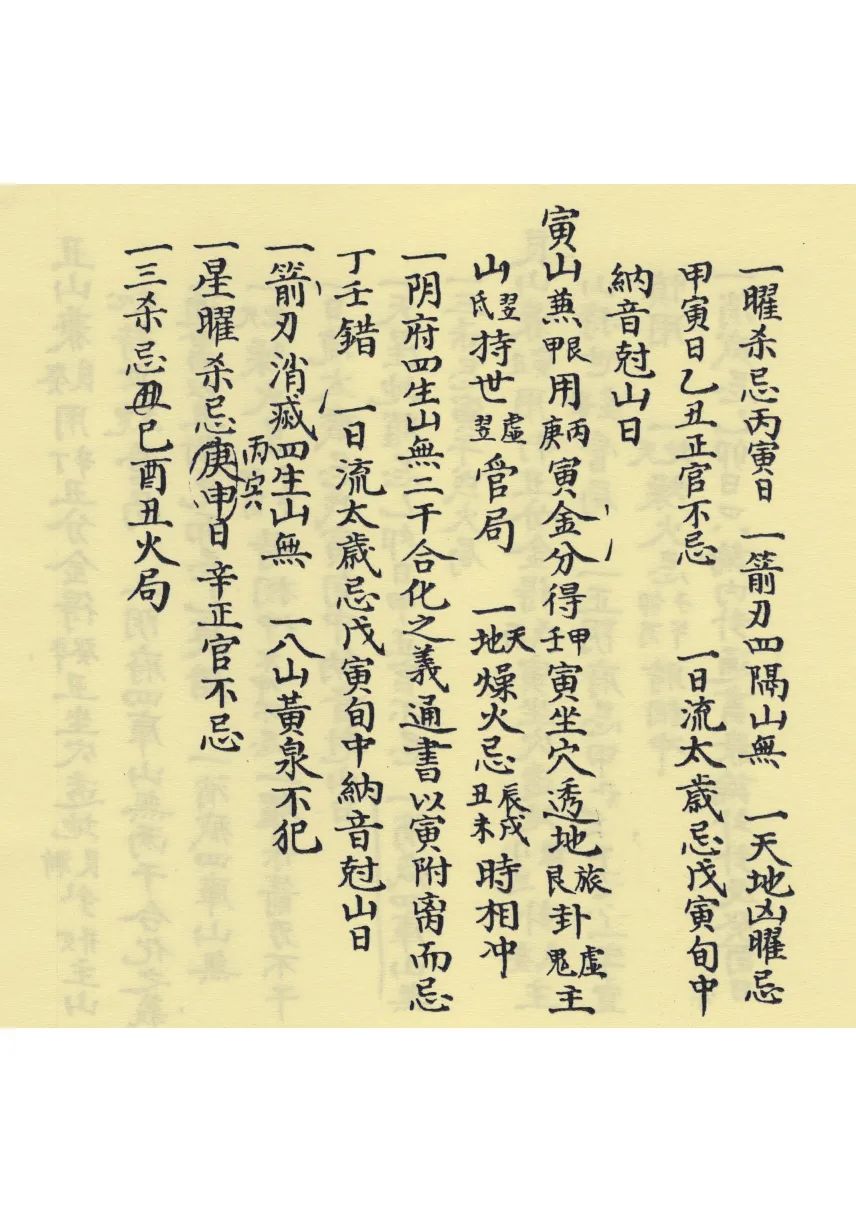 一曜杀忌丙寅日 一箭刃四隅山無 一天地凶曜忌
甲寅日乙丑正官不忌 一日流太歲忌戊寅旬中
納音尅山日
寅山兼甲艮用丙庚寅金分得甲壬寅坐穴透地旅艮卦虛鬼主
山翌氐持世虛翌管局 一天地燥火忌辰戌丑未時相冲
一阴府四生山無二干合化之義通書以寅附离而忌
丁壬錯 一日流太歲忌戊寅旬中納音尅山日
一箭刃消滅四生山無 一八山黃泉不犯
一星曜杀忌庚申丙寅日辛正官不忌
一三杀忌丑巳酉丑火局